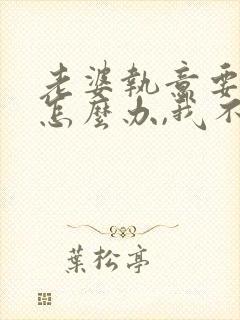 老婆執意要
怎麼办,我不
葉松亭